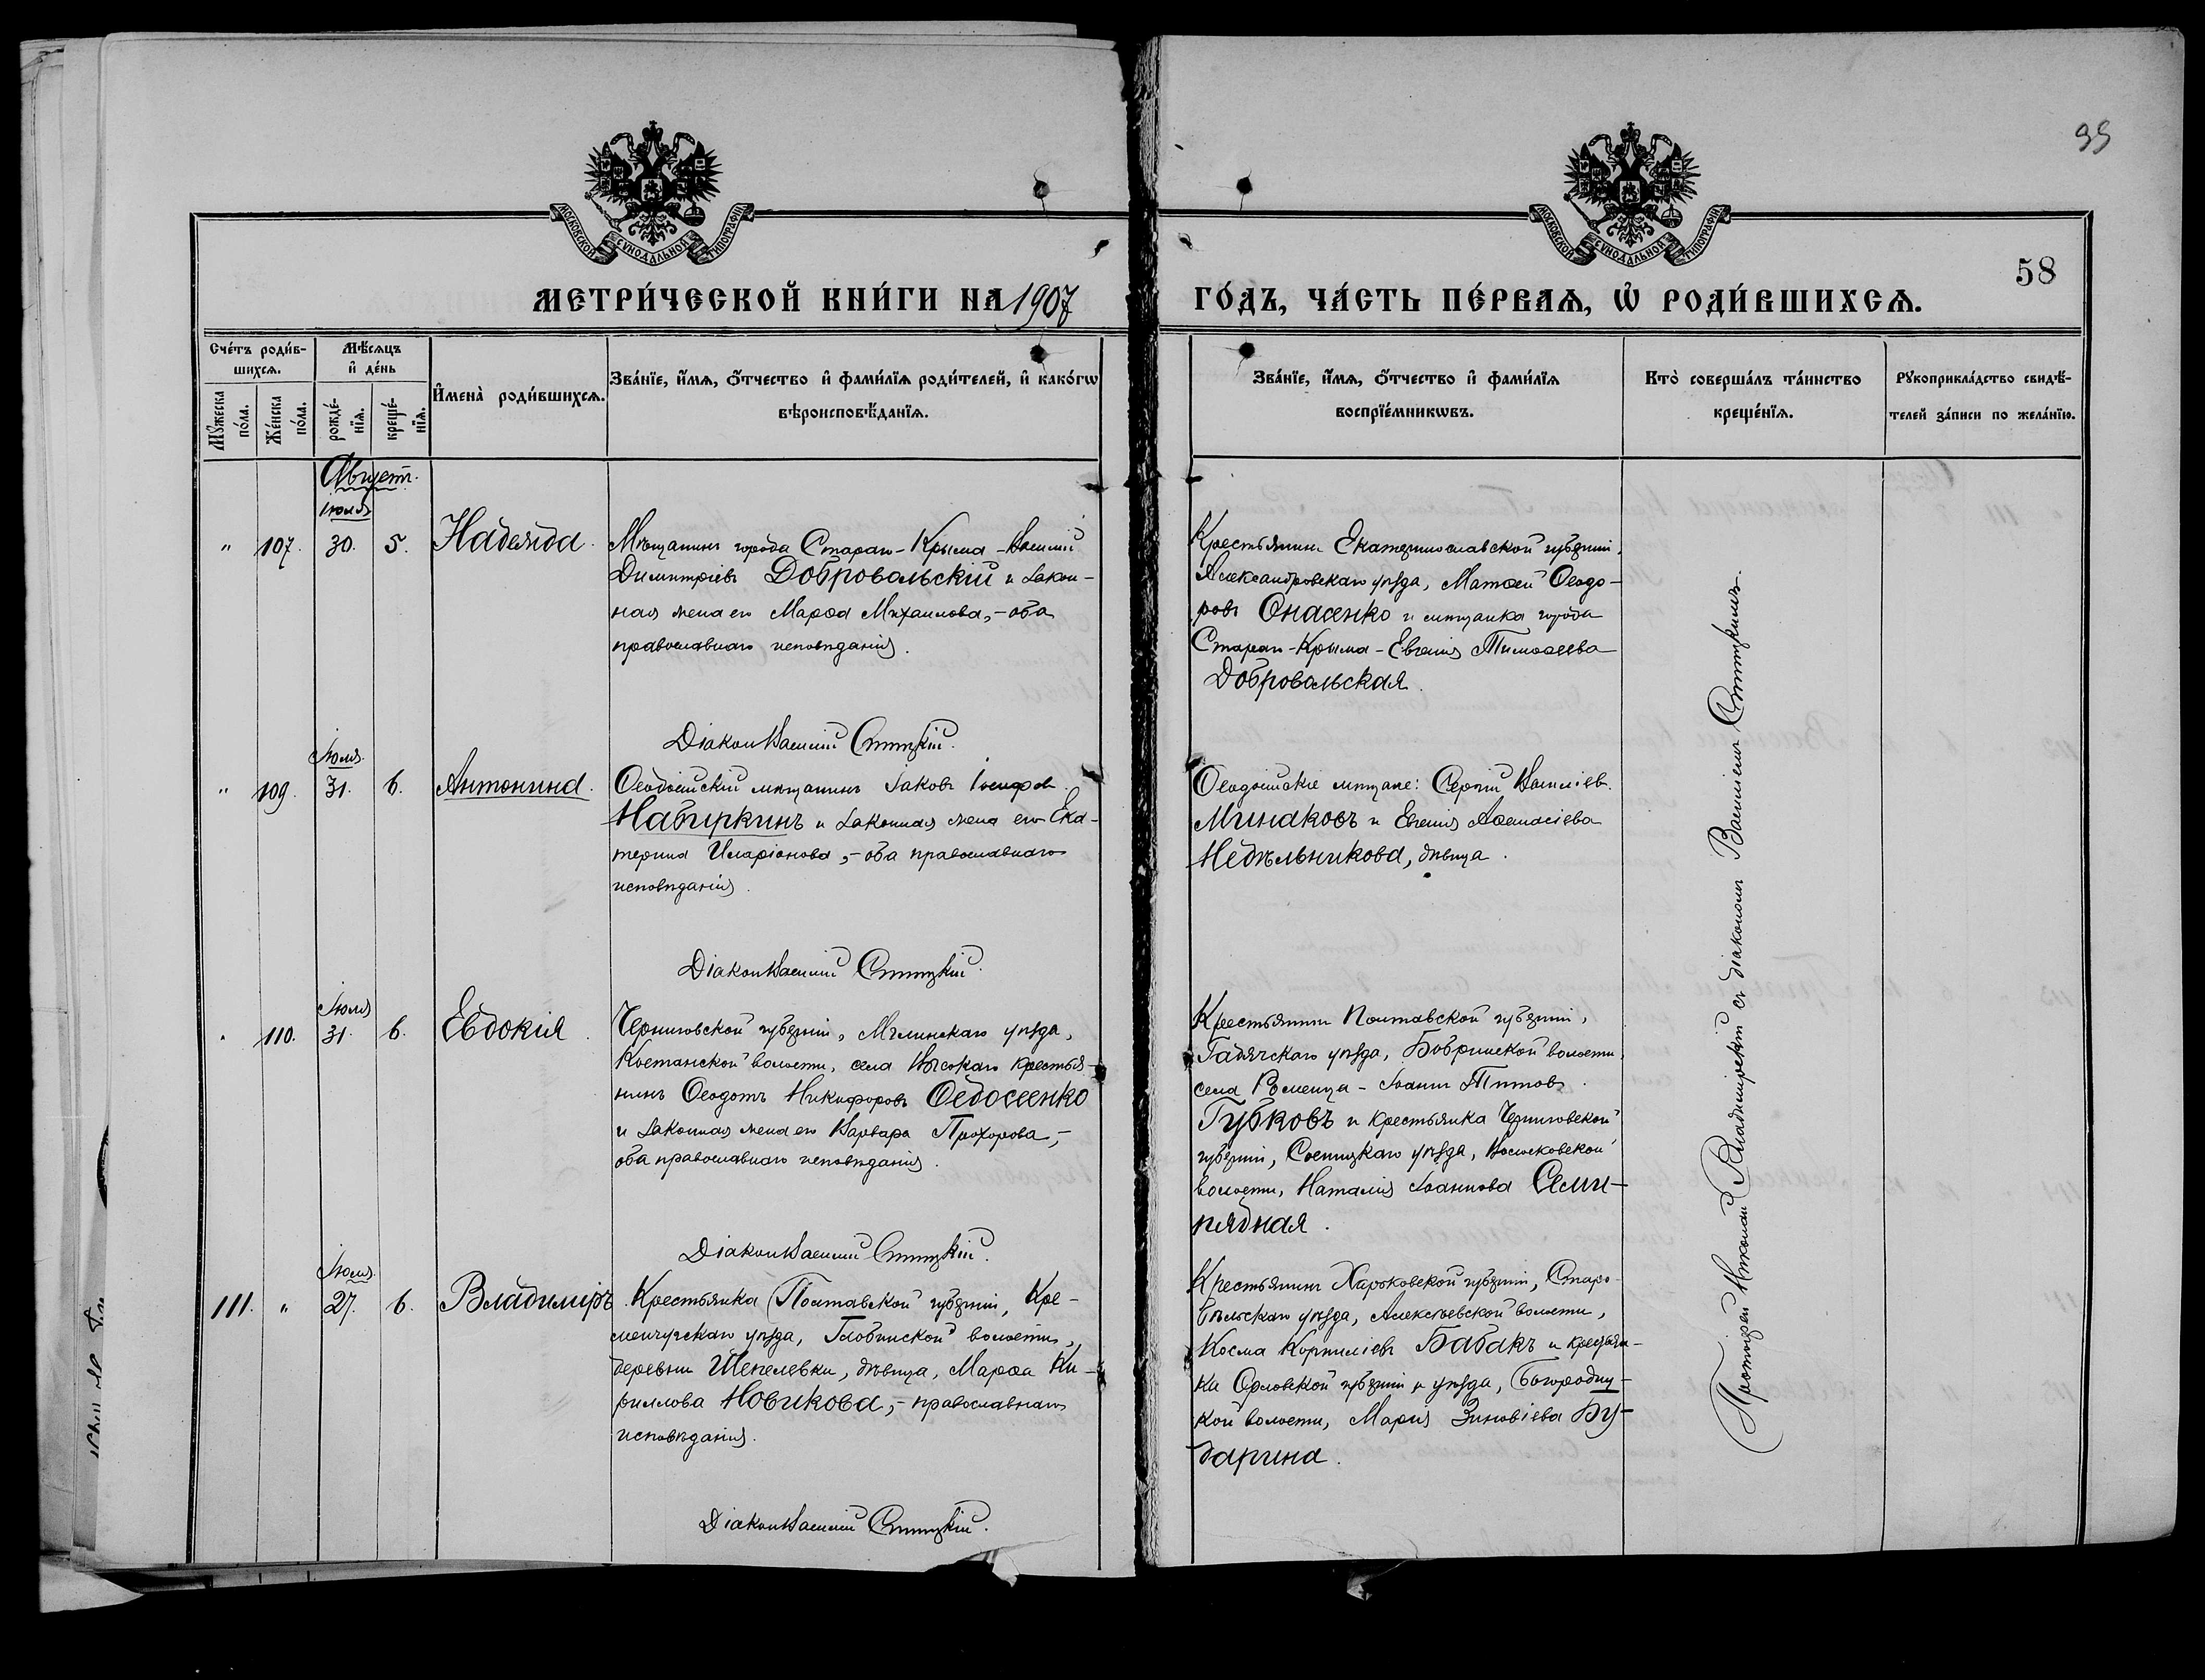 99
58
МОСКОВСКОЙ СѴНОДАЛЬНОЙ ТИПОГРАФІИ
МОСКОВСКОЙ СѴНОДАЛЬНОЙ ТИПОГРАФІИ
МЕТРИ́ЧЕСКОЙ КНИ́ГИ НА 1907
ГО́ДЪ, ЧА́СТЬ ПЕ́РВАѦ, Ѡ҆ РОДИ́ВШИХСѦ.
Сче́тъ роди́в-
шихсѧ.
Мꙋ́жеска по́ла.
Же́нска по́ла.
Мѣ́сѧцъ
и҆ де́нь
рожде́-
нїѧ.
креще́-
нїѧ.
И҆мена̀ роди́вшихсѧ.
Зва́нїе, и҆́мѧ, ѻ҆́тчество и҆ фами́лїѧ роди́телей, и҆ како́гѡ
вѣроисповѣ́данїѧ.
Зва́нїе, и҆́мѧ, ѻ҆́тчество и҆ фами́лїѧ
воспрїе́мникѡвъ.
Кто̀ соверша́лъ та́инство
креще́нїѧ.
Рꙋкоприкла́дство свидѣ́-
телей за́писи по жела́нїю.
Августъ.
Іюля
" 107. 30. 5. Надежда.
Мѣщанинъ города Стараго-Крыма - Василій
Димитріевъ Добровольскій и закон-
ная жена его Марѳа Михаилова, - оба
православнаго исповѣданія.
Діаконъ Василій Ститцкій.
Крестьянинъ Екатеринославской губерніи,
Александровскаго уѣзда, Матѳей Ѳеодо-
ровъ Онасенко и мѣщанка города
Стараго-Крыма - Евгенія Тимоѳеева
Добровольская.
Іюля.
" 109. 31. 6. Антонина.
Ѳеодосійскій мѣщанинъ Іаковъ Іосифовъ
Набиркинъ и законная жена его Ека-
терина Иларіонова, - оба православнаго
исповѣданія.
Діаконъ Василій Ститцкій.
Ѳеодосійскіе мѣщане: Сергій Василіевъ
Минаковъ и Евгенія Аѳанасіева
Недѣльникова, дѣвица.
Іюля
" 110. 31. 6. Евдокія.
Черниговской губерніи, Мглинскаго уѣзда,
Костанской волости, села Высокаго крестья-
нинъ Ѳеодотъ Никифоровъ Ѳедосеенко
и законная жена его Варвара Прохорова, -
оба православнаго исповѣданія.
Діаконъ Василій Ститцкій.
Крестьянинъ Полтавской губерніи,
Гадячскаго уѣзда, Бобрикской волости,
села - Іоаннъ Титовъ
Губковъ и крестьянка Черниговской
губерніи, Сосницкаго уѣзда,
волости, Наталія Іоаннова Семи-
рядная.
Іюля.
111. " 27. 6. Владимиръ.
Крестьянка Полтавской губерніи, Кре-
менчугскаго уѣзда, Глобинской волости,
деревни Шепелевки, дѣвица, Марѳа Ки-
риллова Новикова, - православнаго
исповѣданія.
Діаконъ Василій Ститцкій.
Крестьянинъ Харьковской губерніи, Старо-
бѣльскаго уѣзда, Алексѣевской волости,
Косма Корниліевъ Бабакъ и крестьян-
ка Орловской губерніи и уѣзда, Богородиц-
кой волости, Марія Зиновіева Бу-
дарина.
Протоіерей Николай Владимирскій съ діакономъ Василіемъ Ститцкимъ.